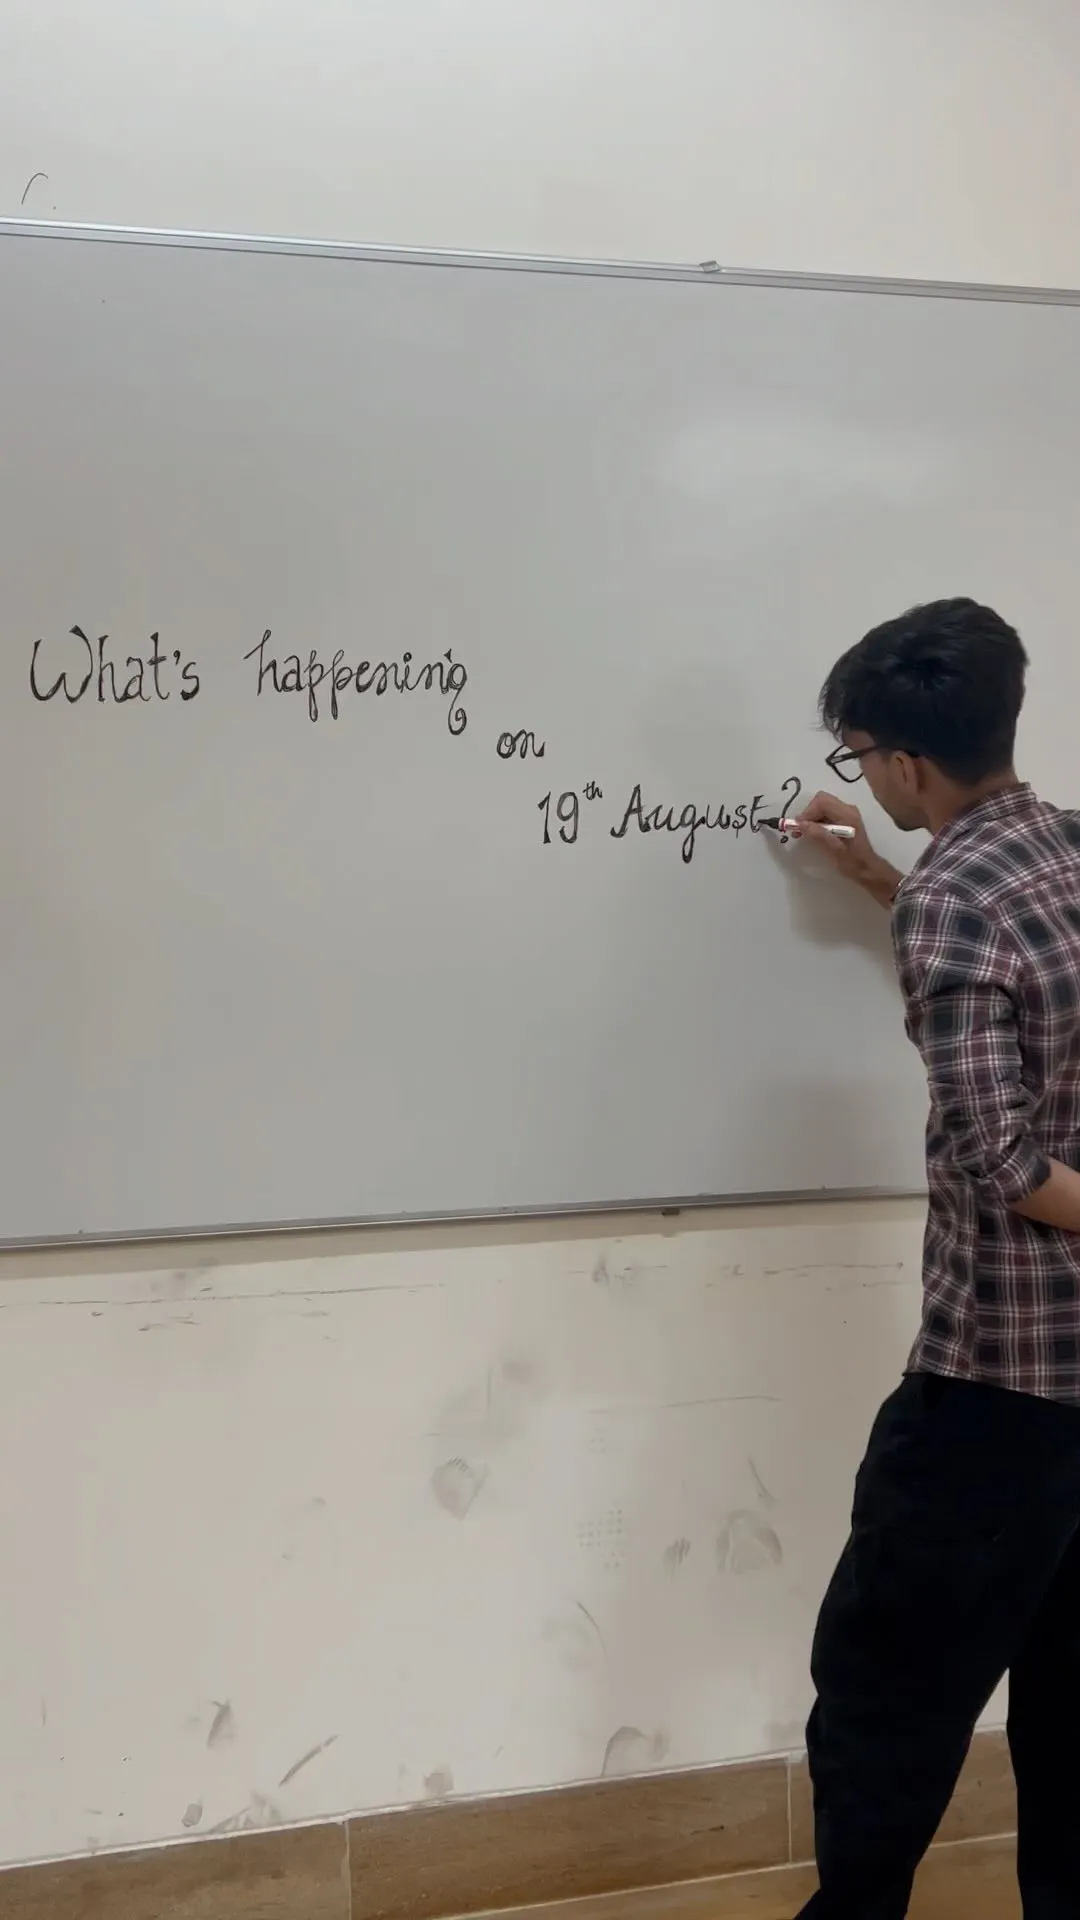 What's happening
on
19th August?